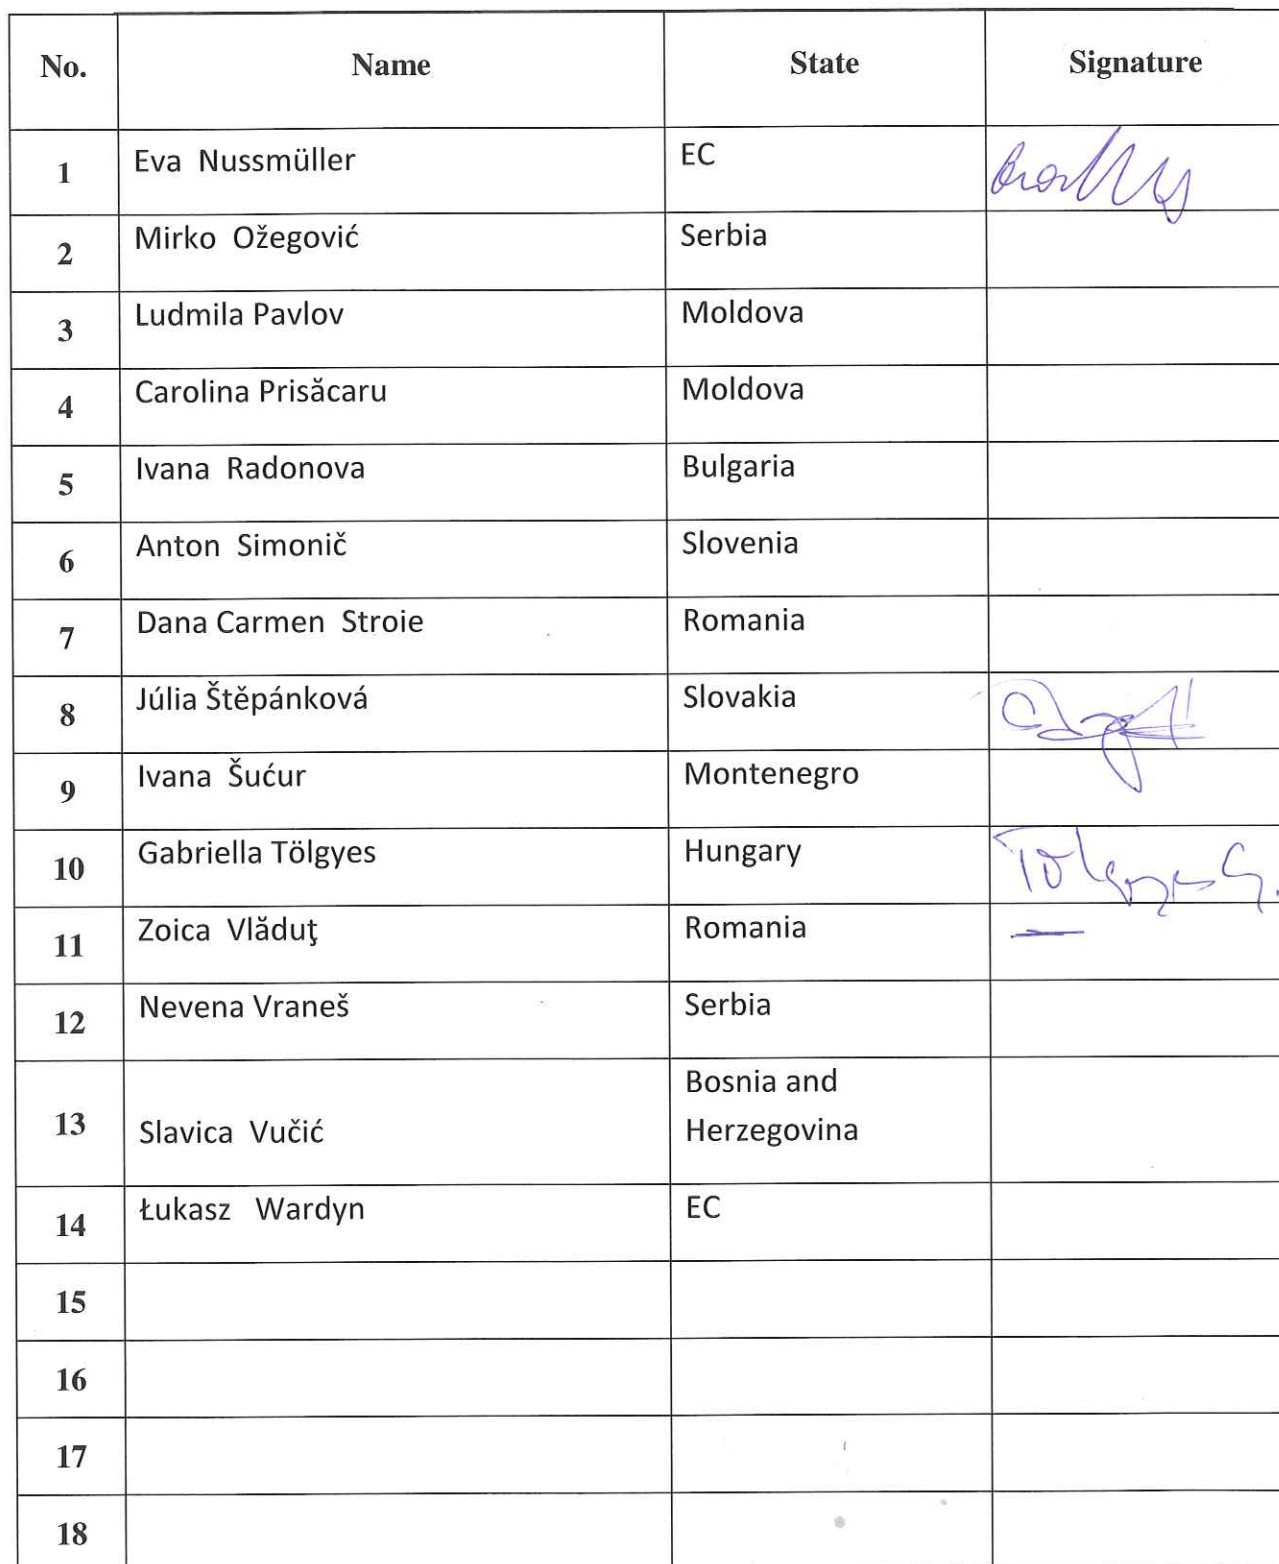 No. Name State Signature
1 Eva Nussmüller EC
2 Mirko Ožegović Serbia
3 Ludmila Pavlov Moldova
4 Carolina Prisăcaru Moldova
5 Ivana Radonova Bulgaria
6 Anton Simonič Slovenia
7 Dana Carmen Stroie Romania
8 Júlia Štěpánková Slovakia
9 Ivana Šućur Montenegro
10 Gabriella Tölgyes Hungary Tölgyes G.
11 Zoica Vlăduţ Romania
12 Nevena Vraneš Serbia
Bosnia and
13 Slavica Vučić Herzegovina
14 Łukasz Wardyn EC
15
16
17
18